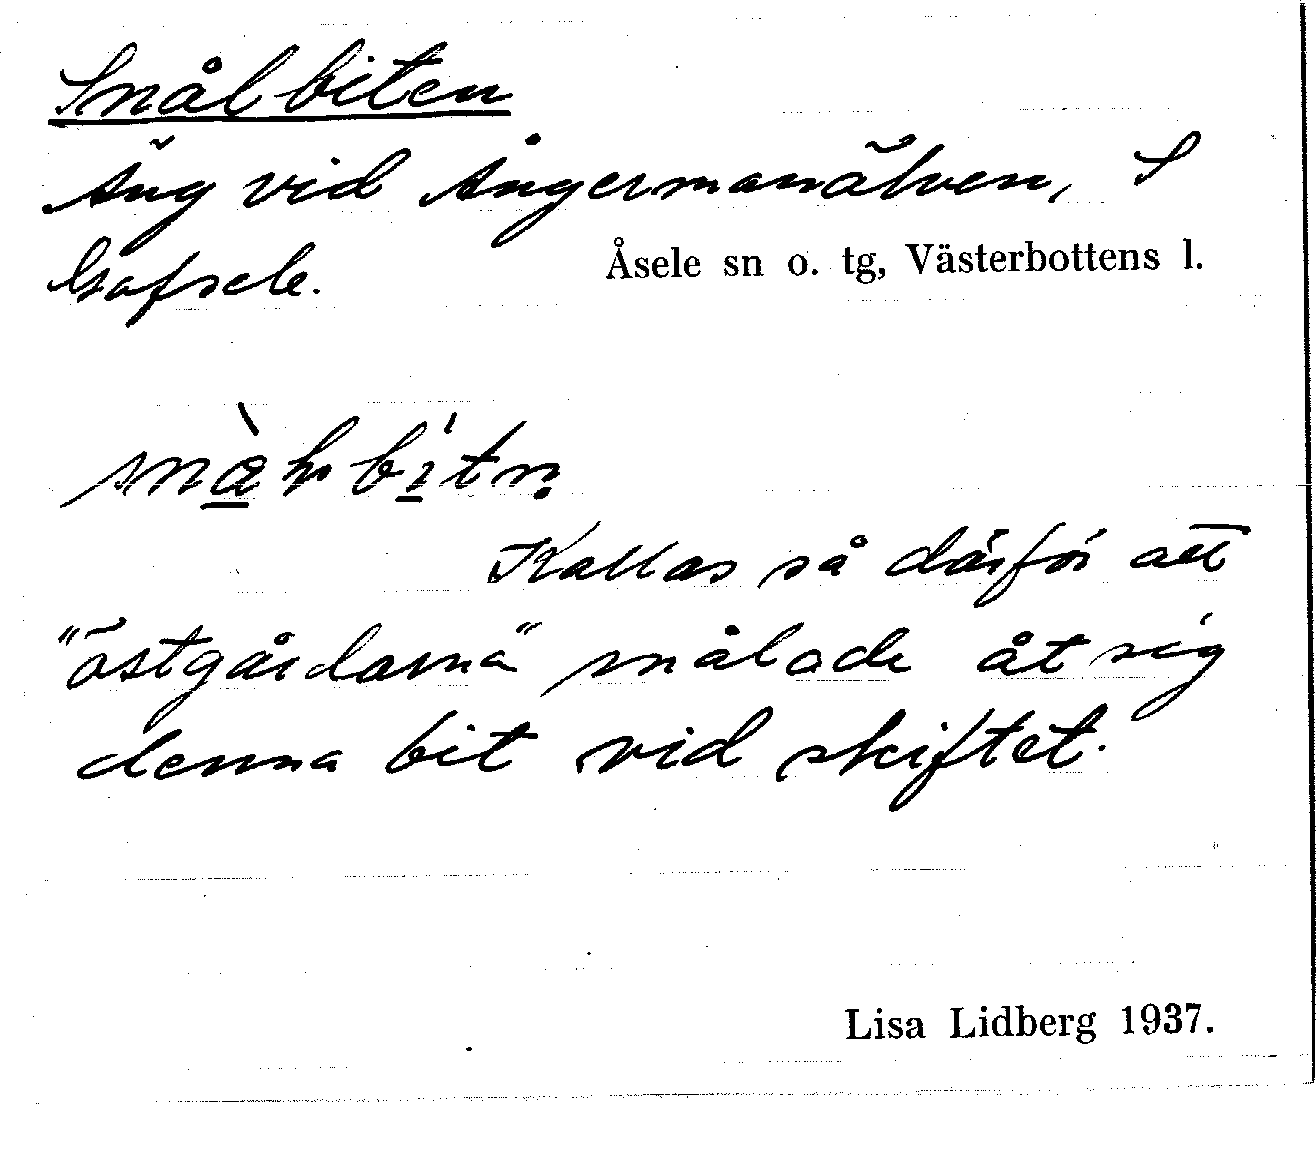 Snålbiten
Äng vid Ångermanälven, S
Gafsele.
Åsele sn o. tg, Västerbottens l.
Kallas så därför att
"östgårdarna" snålade åt sig
denna bit vid skiftet.
Lisa Lidberg 1937.